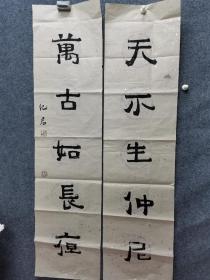 天不生仲尼
萬古如長夜